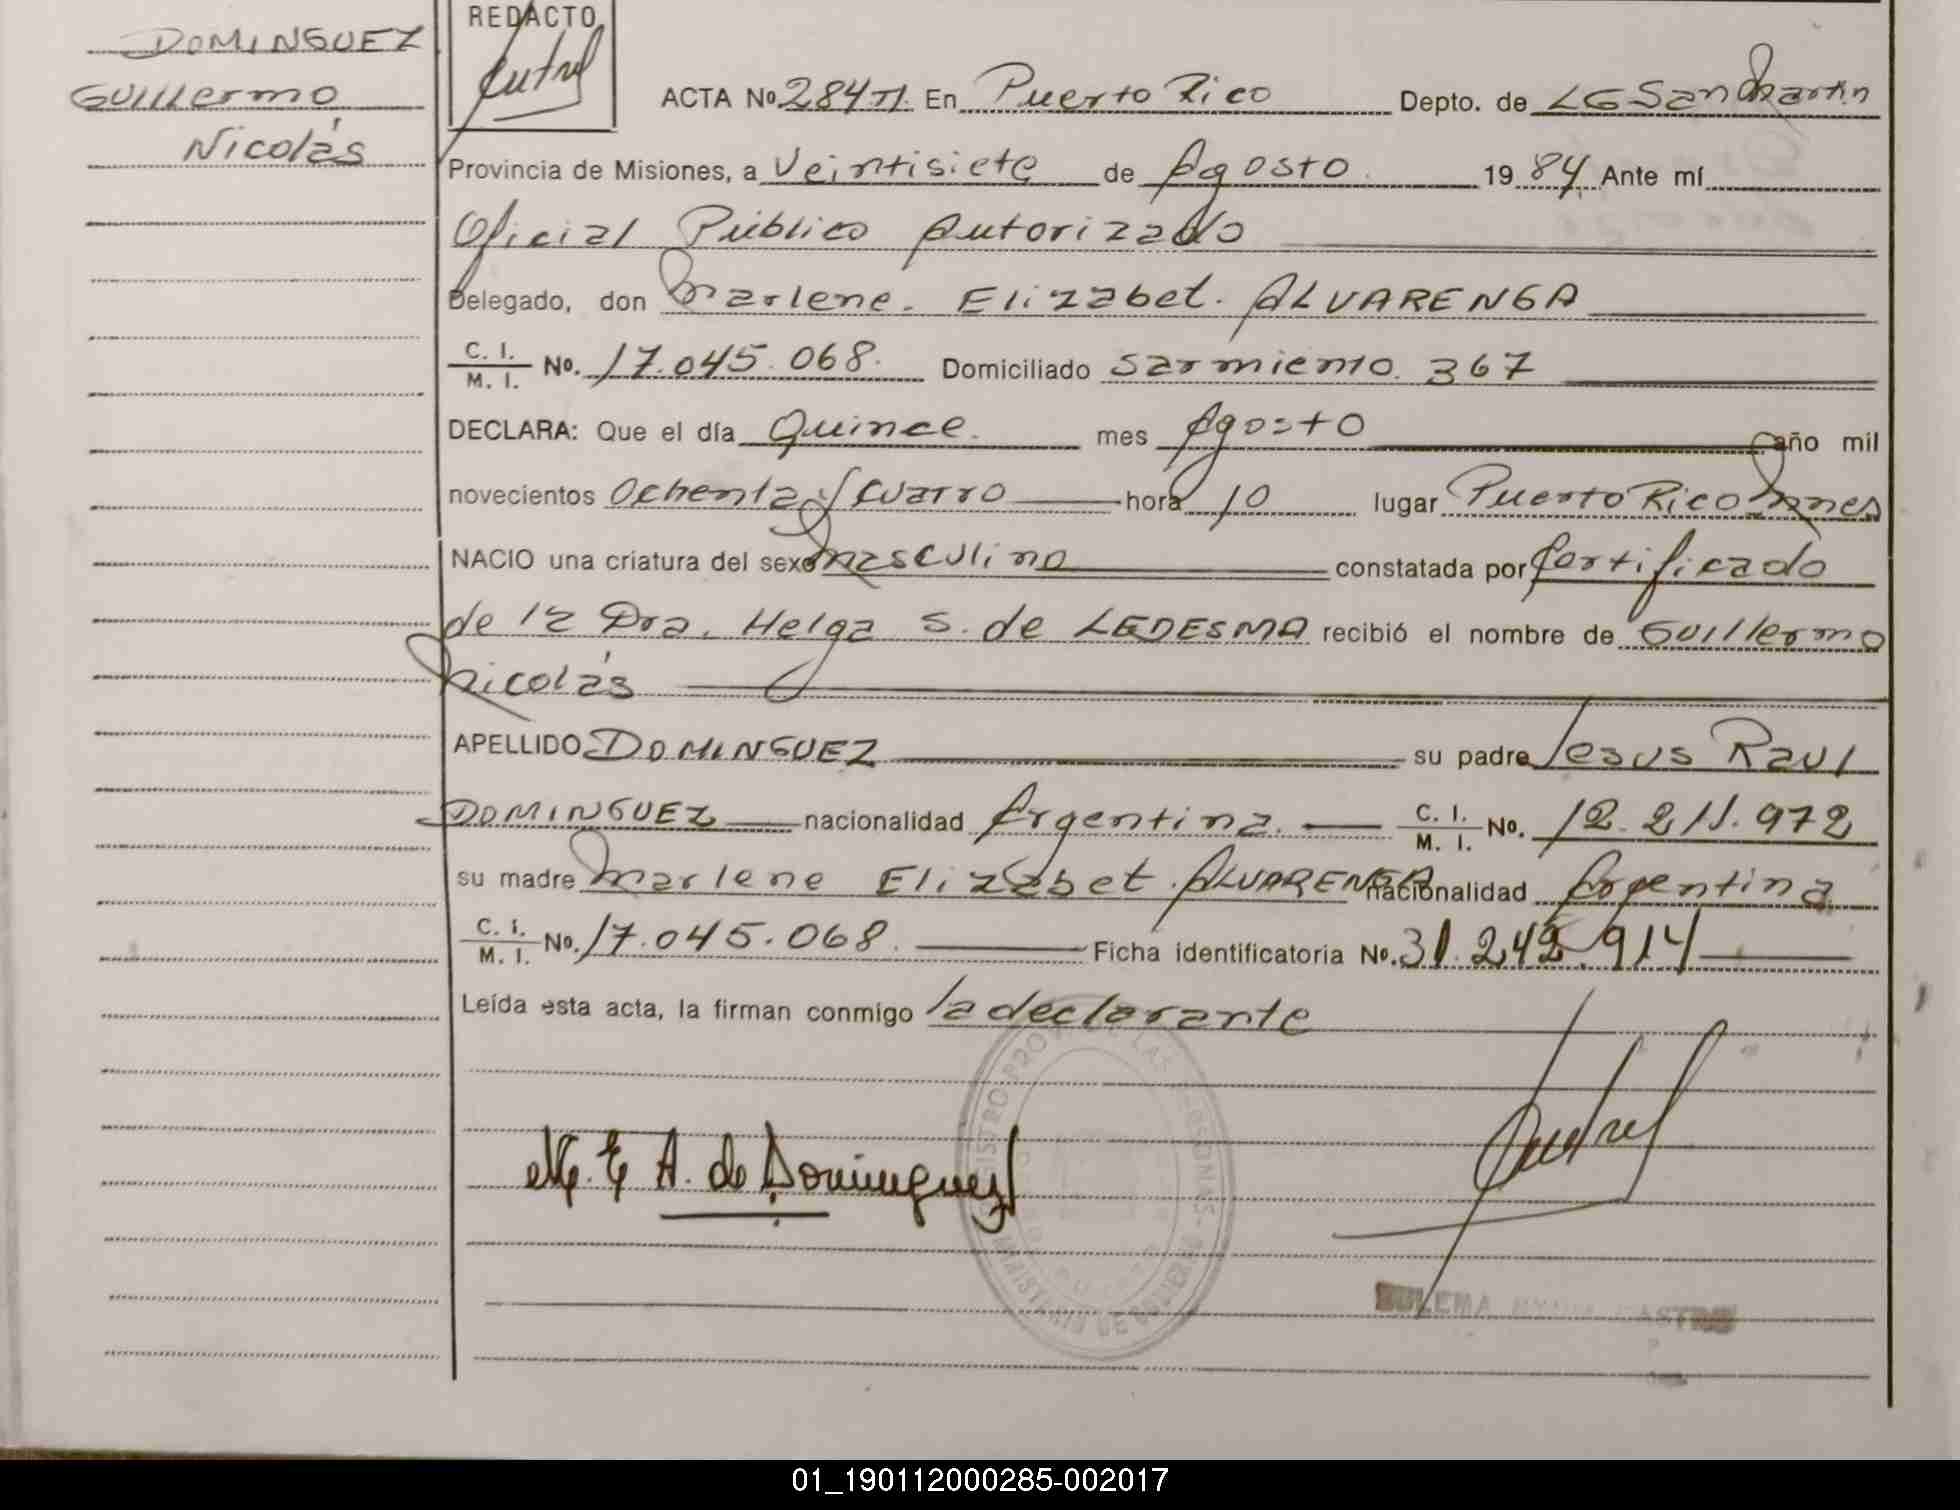 DOMINGUEZ
Guillermo
Nicolás
REDACTO
ACTA No. 284 TI. En Puerto Rico Depto. de LG San Martin
Provincia de Misiones, a Veintisiete de Agosto 1984 Ante mí
Oficial Público Autorizado
Delegado, don Marlene. Elizabet. ALVARENGA
C. I. M. I. No. 17.045.068. Domiciliado Sarmiento. 367
DECLARA: Que el día Quince. mes Agosto año mil
novecientos Ochenta y Cuatro hora 10 lugar Puerto Rico Mnes
NACIO una criatura del sexo Masculino constatada por Certificado
de la Dra. Helga S. de LEDESMA recibió el nombre de Guillermo
Nicolás
APELLIDO DOMINGUEZ su padre Jesus Raul
DOMINGUEZ nacionalidad Argentina. C. I. M. I. No. 12.211.972
su madre Marlene Elizabet. ALVARENGA nacionalidad Argentina
C. I. M. I. No. 17.045.068. Ficha identificatoria No. 31.242.914
Leída esta acta, la firman conmigo la declarante
M. E A. de Dominguez
01_190112000285-002017